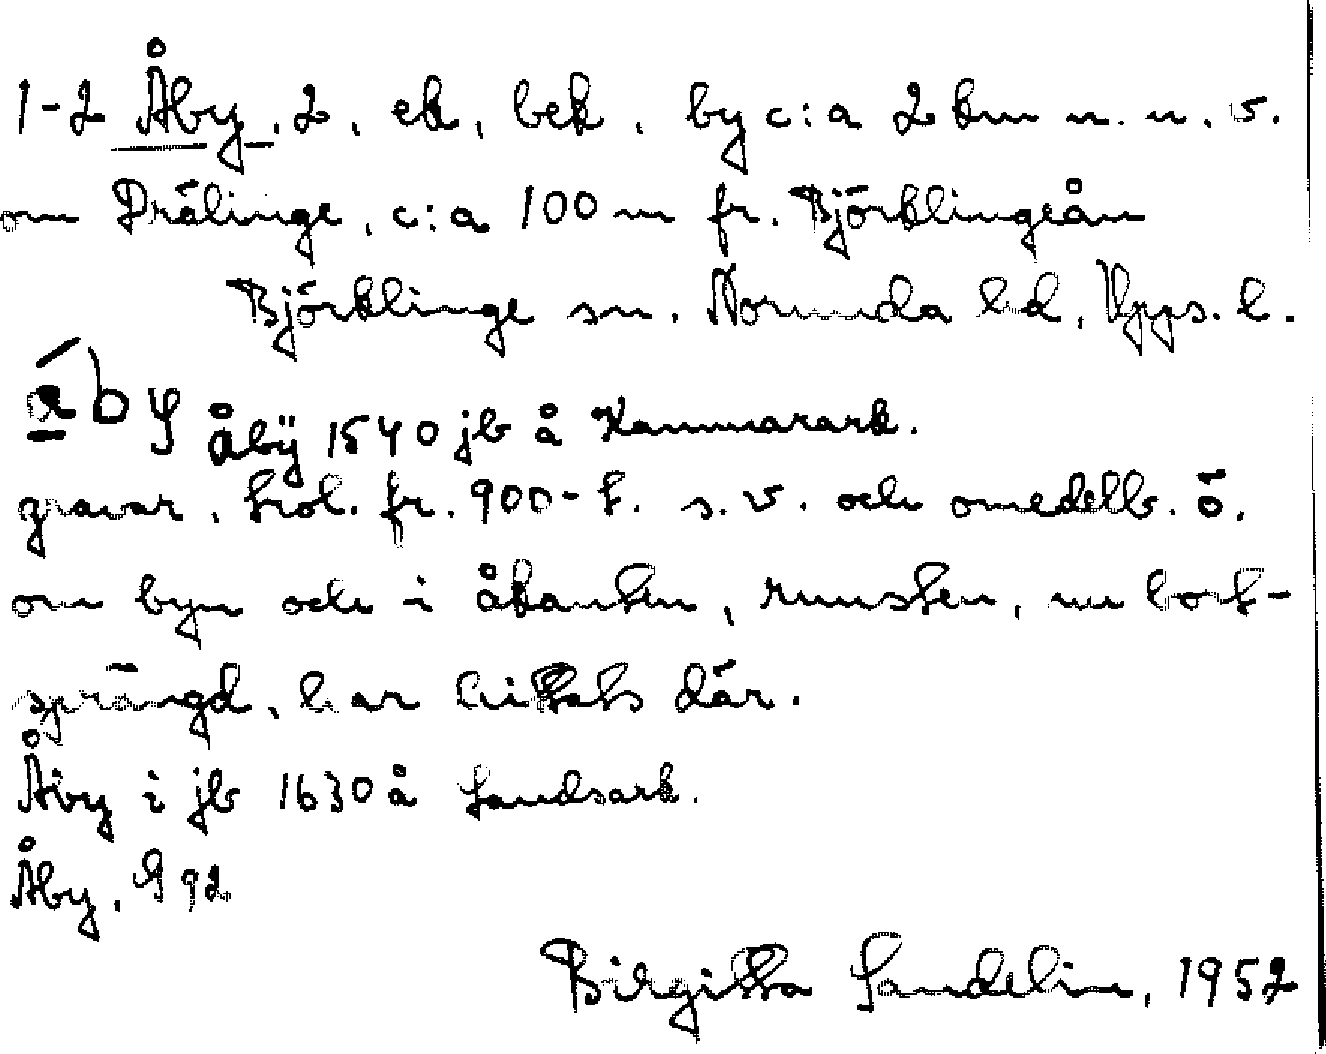 1-2 Åby, 2, ek, bek, by c:a 2 km n. n. v.
om Drälinge, c:a 100 m fr. Björklingeån
Björklinge sn. Norunda hd, Upps. l.
by Åbÿ 1540 jb å Kammarark.
gravar, trol. fr. 900-t. s.v. och omedelb. ö.
om byn och i åkanten, runsten, nu bort-
sprängd, har hittats där.
Åby i jb 1630 å Landsark.
Åby, 92
Birgitta Sandelin, 1952